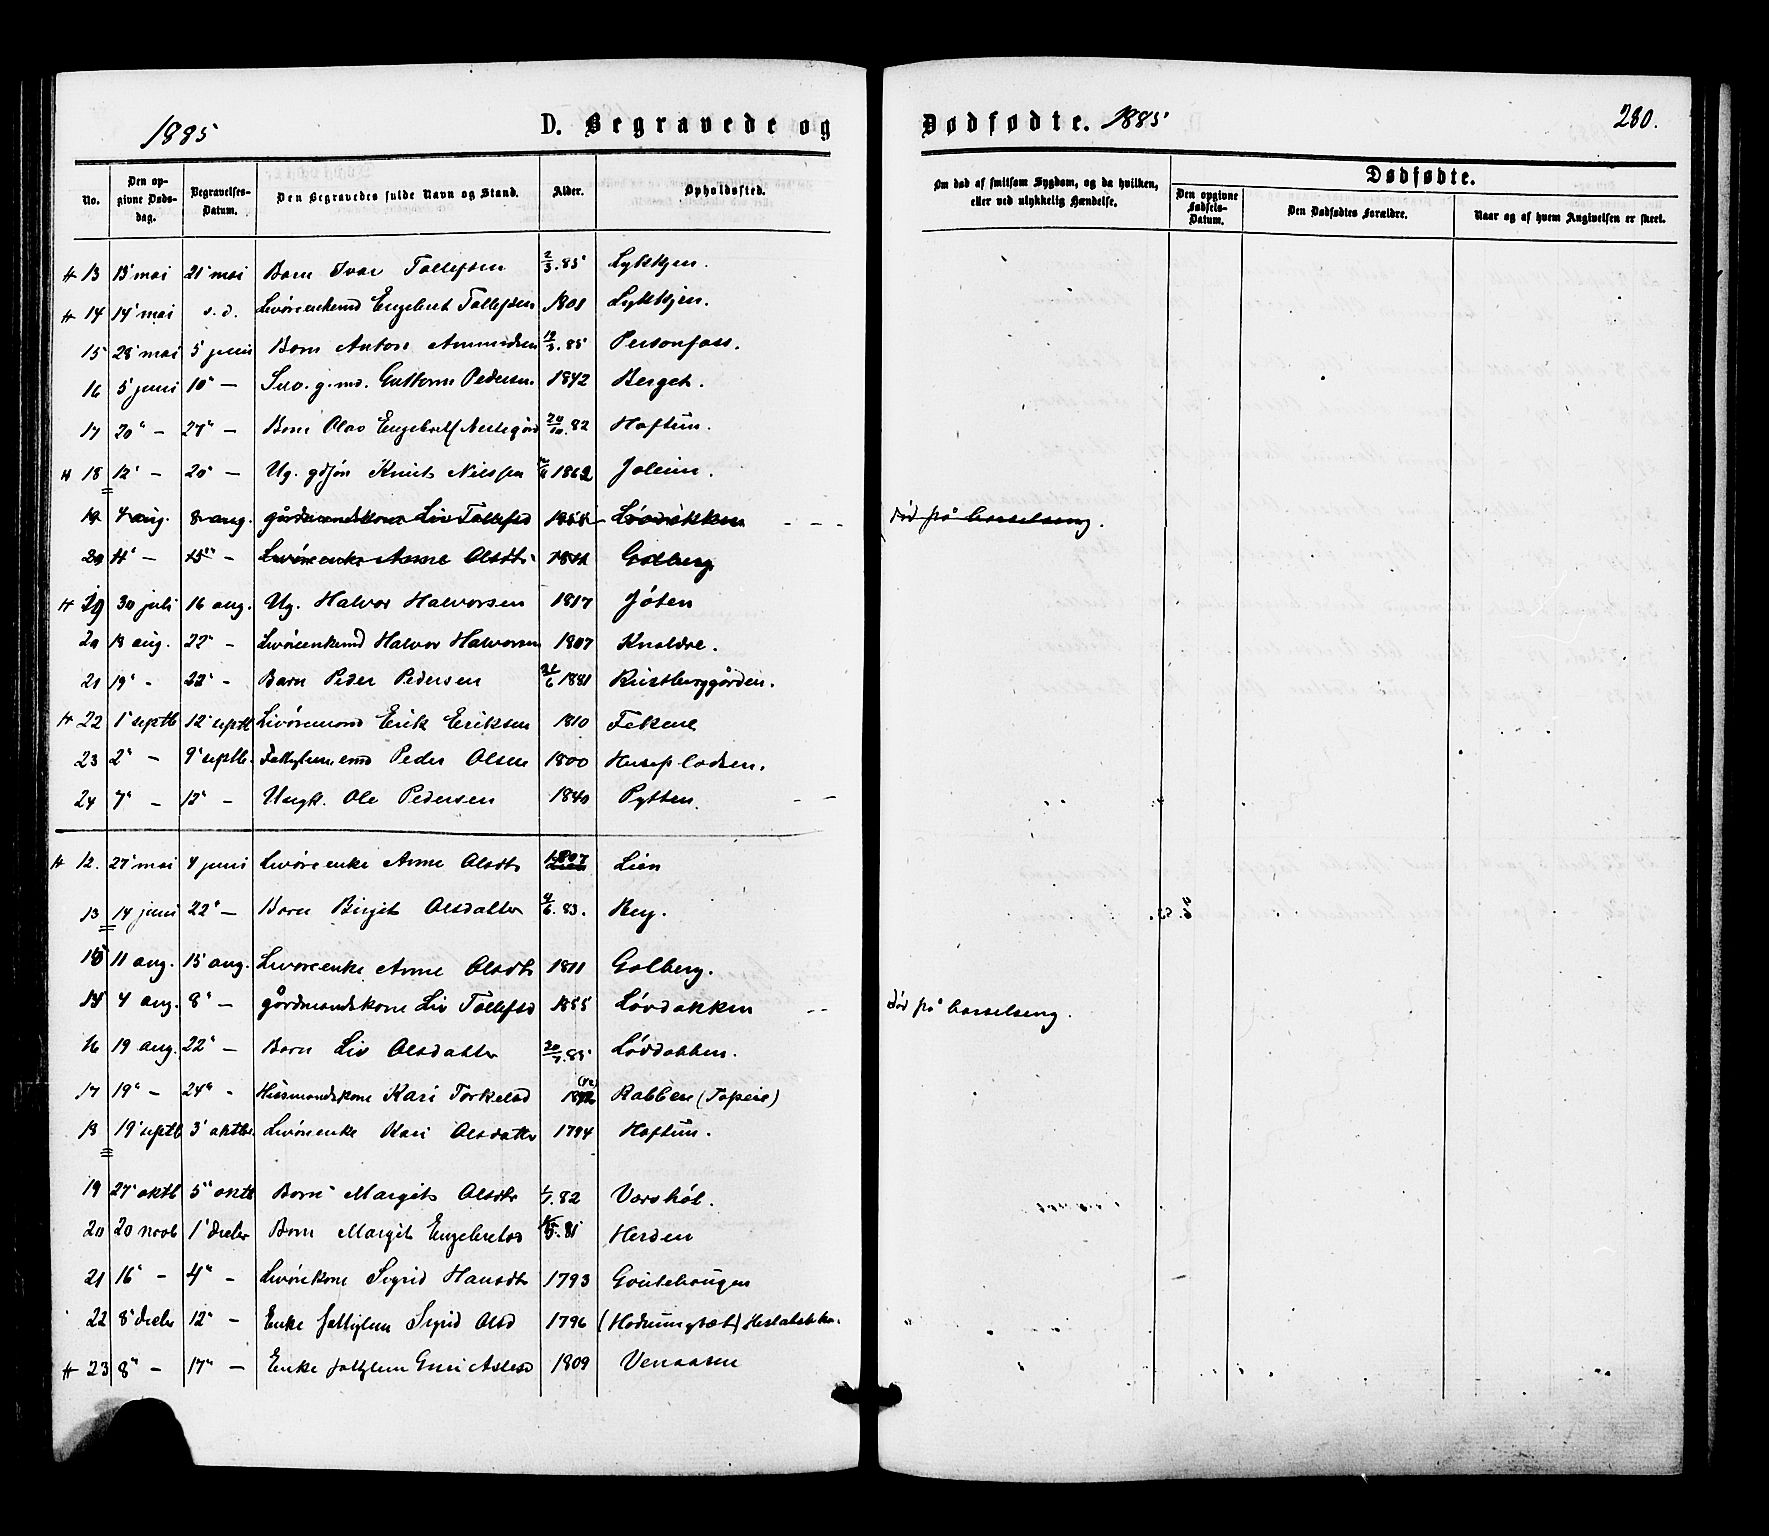 1885 D. Begravede og Dødfødte. 1885 280.
No. Den opgivne Dødsdag. Begravelses-Datum. Den Begravedes fulde Navn og Stand. Alder. Opholdssted. Om død af smitsom Sygdom, og da hvilken, eller ved ulykkelig Hændelse. Dødfødte. Den opgivne Fødsels-Datum. Den Dødfødtes Forældre. Naar og af hvem Angivelsen er skeet.
# 13 13' mai 21' mai Barn Ivar Tollefsen 2/3.85 Lykkjen.
# 14 14' mai s.d. Livöreenkemd Engebret Tollefsen 1801 Lykkjen.
15 28' mai 5 juni Barn Anton 12/3.85 Personfoss.
16 5' juni 10" — g.md. Guttorm Pedersen 1842 Berget.
17 20" — 27" — Barn Olav Engebretf 24/10.82 Haftun.
# 18 12' — 20' — Ug. Knut Nilssen 1862 Joleim.
19 4 aug. 8 aug. gårdmandskone Liv Tollefsd 1855 Lövdokken - - - död på barselseng.
20 11' — 15" — Livöreenke Anne Olsdtr 1811 Golberg
# 19 30 juli 16 aug. Ug. Halvor Halvorsen 1817 Jöten
20 13 aug. 22" — Livöreenkemd Halvor Halvorsen 1807 Knoldre.
21 19" - 22" - Barn Peder Pedersen 21/6 1881 Rustberggården.
# 22 1' septb 12' septb Livöremand Erik Eriksen 1810 Fekene
23 2" — 9' septb. Peder Olsen 1800 Huseplodsen.
24 7" — 12" - Ungk. Ole Pedersen 1840 Pytten.
# 12. 27' mai 4 juni Livöreenke Anne Olsdtr 1807 Lien
13 14 juni 22" — Barn Birgit Olsdatter 4/6.83. Berg.
15 11 aug. 15' aug. Livöreenke Anne Olsdtr 1811 Golberg.
14 4 aug. 8" — gårdmandskone Liv Tollefsd 1855 Lövdokken - - död på barselseng.
16 19 aug. 22" — Barn Liv Olsdatter 20/7.85 Lövdokken.
17 19" - 24" - Husmandskone Kari Torkelsd (42) Rabben (Topeie)
18 19' septb 3' oktbr Livöreenke Kari Olsdatter 1794 Haftun.
19 27' oktb 5" oktb Barn Margit Olsdtr 1/7.82 Varshöl.
20 20 novb 1' decbr Barn Margit Engebretsd 81 Herden
21 16" - 4" - Livörekone Sigrid Hansdtr 1793 Gvitehaugen
22 8' decbr 12" — Enke fattiglem Sigrid Olsd 1796
# 23 8" — 17" — Enke fattiglem Guri Aslesd 1809 Venaasen